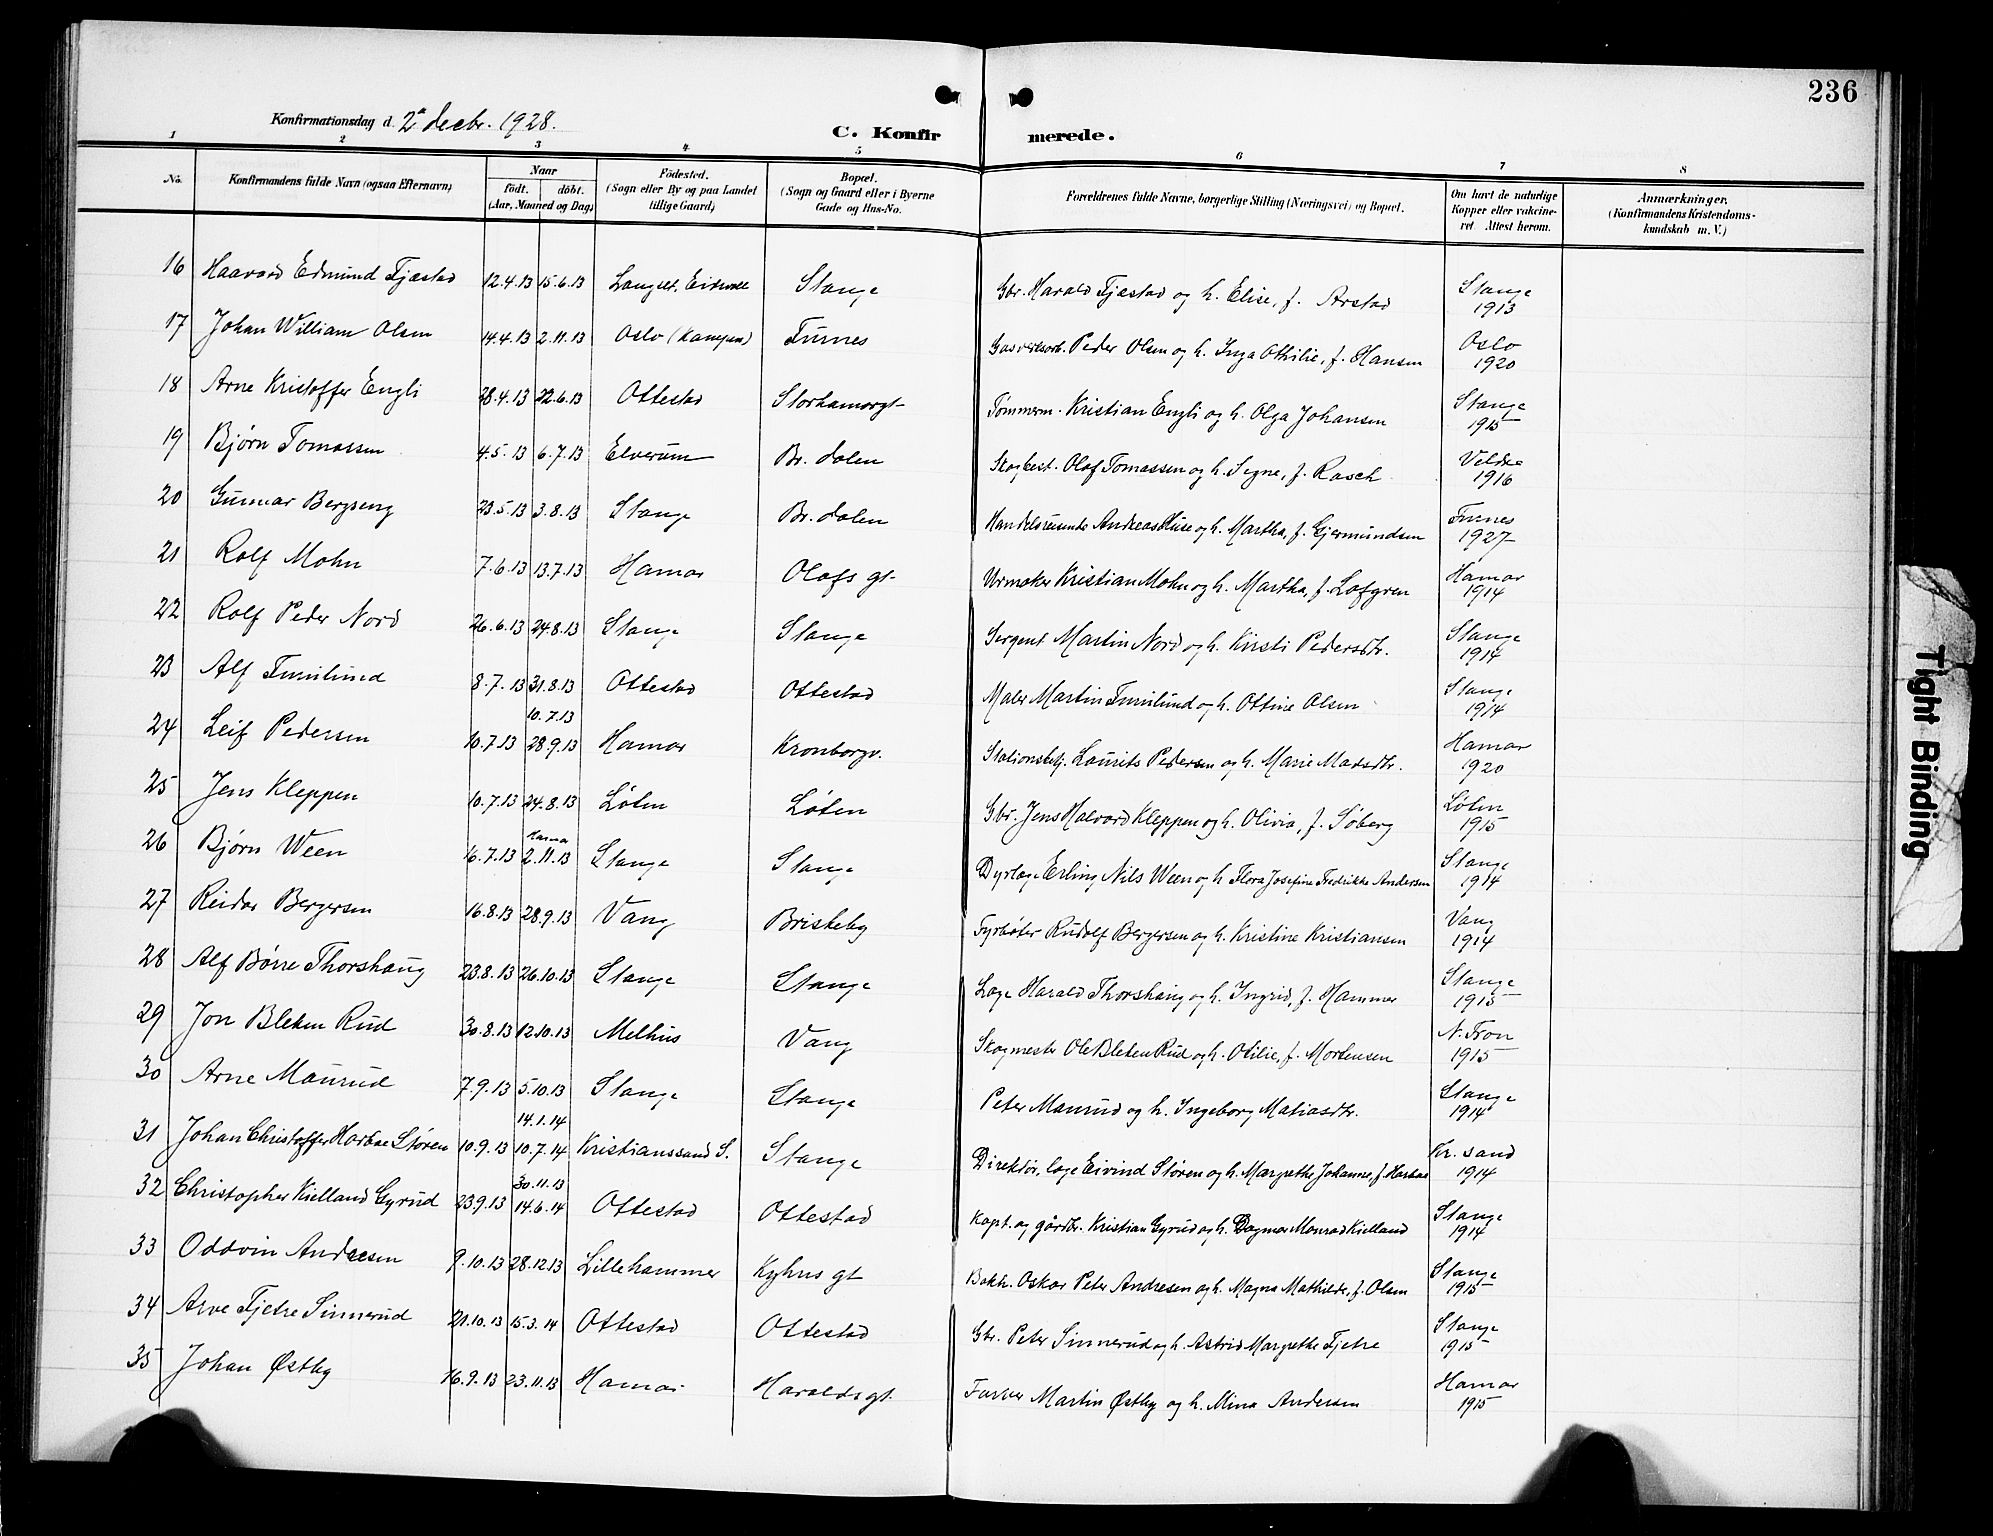 236
Konfirmationsdag d. 2n decbr. 1928.
C. Konfirmerede.
1 2 3 4 5 6 7 8
No. Konfirmandens fulde Navn (ogsaa Efternavn) Naar födt. döbt. (Aar, Maaned og Dag) Födested. (Sogn eller By og paa Landet tillige Gaard) Bopæl. (Sogn og Gaard eller i Byerne Gade og Hus-No. Forældrenes fulde Navne, borgerlige Stilling (Næringsvei) og Bopæl. Om havt de naturlige Kopper eller vakcineret. Attest herom. Anmærkninger. (Konfirmandens Kristendomskundskab m. V.)
16 Haavard Edmund Fjæstad 12.4.13 15.6.13 Langset, Eidsvoll Stange Gbr. Harald Fjæstad og h. Elise, f. Arstad Stange 1913
17 Johan William Olsen 14.4.13 2.11.13 Oslo (Kampen) Furnes Gasverksarb. Peder Olsen og h. Inga Othilie, f. Hansen Oslo 1920
18 Arne Kristoffer Engli 28.4.13 22.6.13 Ottestad Storhamargt Tømmerm. Kristian Engli og h. Olga Johansen Stange 1915
19 Bjørn Tomassen 4.5.13 6.7.13 Elverum Br. dalen Skogbest. Olaf Tomassen og h. Signe, f. Rasch Veldre 1916
20 Gunnar Bergseng 23.5.13 3.8.13 Stange Br. dalen Handelsreisende Andreas Huse og h. Martha, f. Gjermundsen Furnes 1927
21 Rolf Mohn 7.6.13 13.7.13 Hamar Olafs gt. Urmaker Kristian Mohn og h. Martha, f. Lofgren Hamar 1914
22 Rolf Peder Nord 26.6.13 24.8.13 Stange Stange Sergent Martin Nord og h. Kirsti Pedersdtr. Stange 1914
23 Alf Furulund 8.7.13 31.8.13 Ottestad Ottestad Maler Martin Furulund og h. Ottine Olsen Stange 1914
24 Leif Pedersen 10.7.13 10.7.13 28.9.13 Hamar Kronborgv. Stationsbetj. Laurits Pedersen og h. Marie Madsdtr. Hamar 1920
25 Jens Kleppen 10.7.13 24.8.13 Løten Løten Gbr. Jens Halvard Kleppen og h. Olivia, f. Søberg Løten 1915
26 Bjørn Ween 16.7.13 Hamar 2.11.13 Stange Stange Dyrlæge Erling Nils Ween og h. Flora Josefine Fredrikke Andersen Stange 1914
27 Reidar Bergersen 16.8.13 28.9.13 Vang Briskeby Fyrbøter Rudolf Bergersen og h. Kristine Kristiansen Vang 1914
28 Alf Børre Thorshaug 23.8.13 26.10.13 Stange Stange Læge Harald Thorshaug og h. Ingrid, f. Hammer Stange 1915
29 Jon Bleken Rud 30.8.13 12.10.13 Melhus Vang Skogmester Ole Bleken Rud og h. Otilie, f. Mortensen N. Fron 1915
30 Arne Maurud 7.9.13 5.10.13 Stange Stange Peter Maurud og h. Ingeborg Matiasdtr. Stange 1914
31 Johan Christoffer Harboe Støren 10.9.13 14.1.14 10.7.14 Kristianssand S. Stange Direktør, læge Eivind Støren og h. Margrethe Johanne, f. Harboe Kr. sand 1914
32 Christopher Kielland Gyrud 23.9.13 30.11.13 14.6.14 Ottestad Ottestad Kapt. og gårdbr. Kristian Gyrud og h. Dagmar Monrad Kielland Stange 1914
33 Oddvin Andresen 9.10.13 28.12.13 Lillehammer Kyhns gt Bokh. Oskar Peter Andresen og h. Magna Mathilde, f. Olsen Stange 1915
34 Arve Fjetre Sinnerud 21.10.13 15.3.14 Ottestad Ottestad Gbr. Peter Sinnerud og h. Astrid Margrethe Fjetre Stange 1915
35 Johan Østby 16.9.13 23.11.13 Hamar Haralds gt. Farver Martin Østby og h. Mina Andersen Hamar 1915
Tight Binding